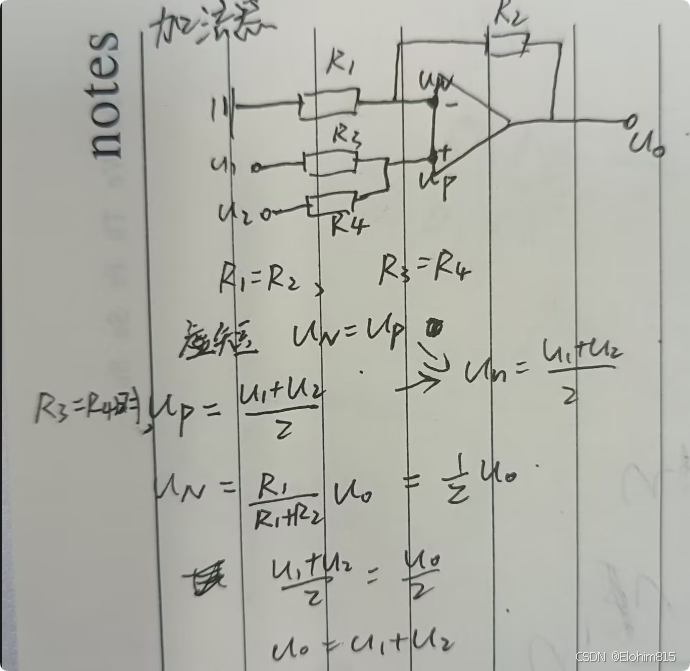 加法器
notes
R2
R1
UN
-
R3
U1
+
Uo
UP
U2
R4
R1=R2, R3=R4
虚短 UN=UP
Un=(U1+U2)/2
R3=R4时, UP=(U1+U2)/2
UN=R1/(R1+R2) Uo=1/2 Uo
(U1+U2)/2=Uo/2
Uo=U1+U2
CSDN @Elohim815